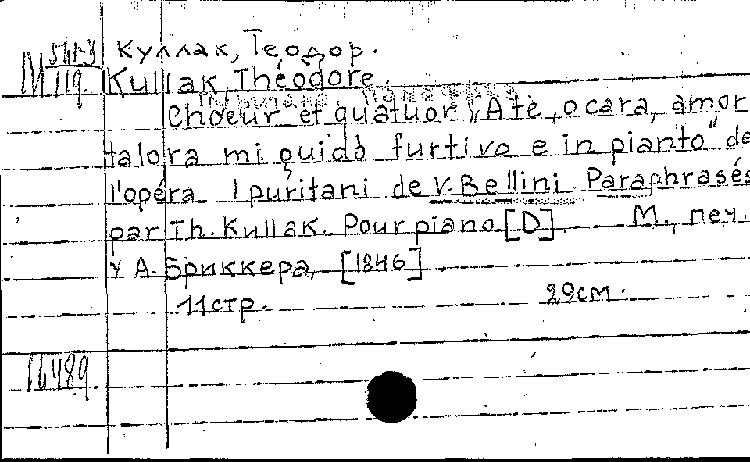 М 511-3 Куллак, Теодор.
119. Kullak Théodore.
Choeur et quatuor „A te, o cara, amor
talora mi guidò furtivo e in pianto" de
l'opéra I puritani de V. Bellini Paraphrasés
par Th. Kullak. Pour piano [D] М., печ.
у А. Бриккера, [1846]
11 стр. 29 см.
16489.